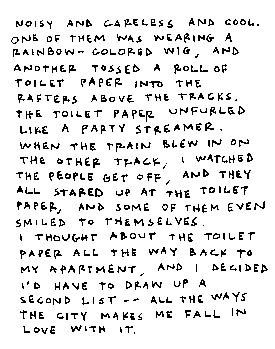 NOISY AND CARELESS AND COOL.
ONE OF THEM WAS WEARING A
RAINBOW-COLORED WIG, AND
ANOTHER TOSSED A ROLL OF
TOILET PAPER INTO THE
RAFTERS ABOVE THE TRACKS.
THE TOILET PAPER UNFURLED
LIKE A PARTY STREAMER.
WHEN THE TRAIN BLEW IN ON
THE OTHER TRACK, I WATCHED
THE PEOPLE GET OFF, AND THEY
ALL STARED UP AT THE TOILET
PAPER, AND SOME OF THEM EVEN
SMILED TO THEMSELVES.
I THOUGHT ABOUT THE TOILET
PAPER ALL THE WAY BACK TO
MY APARTMENT, AND I DECIDED
I'D HAVE TO DRAW UP A
SECOND LIST -- ALL THE WAYS
THE CITY MAKES ME FALL IN
LOVE WITH IT.